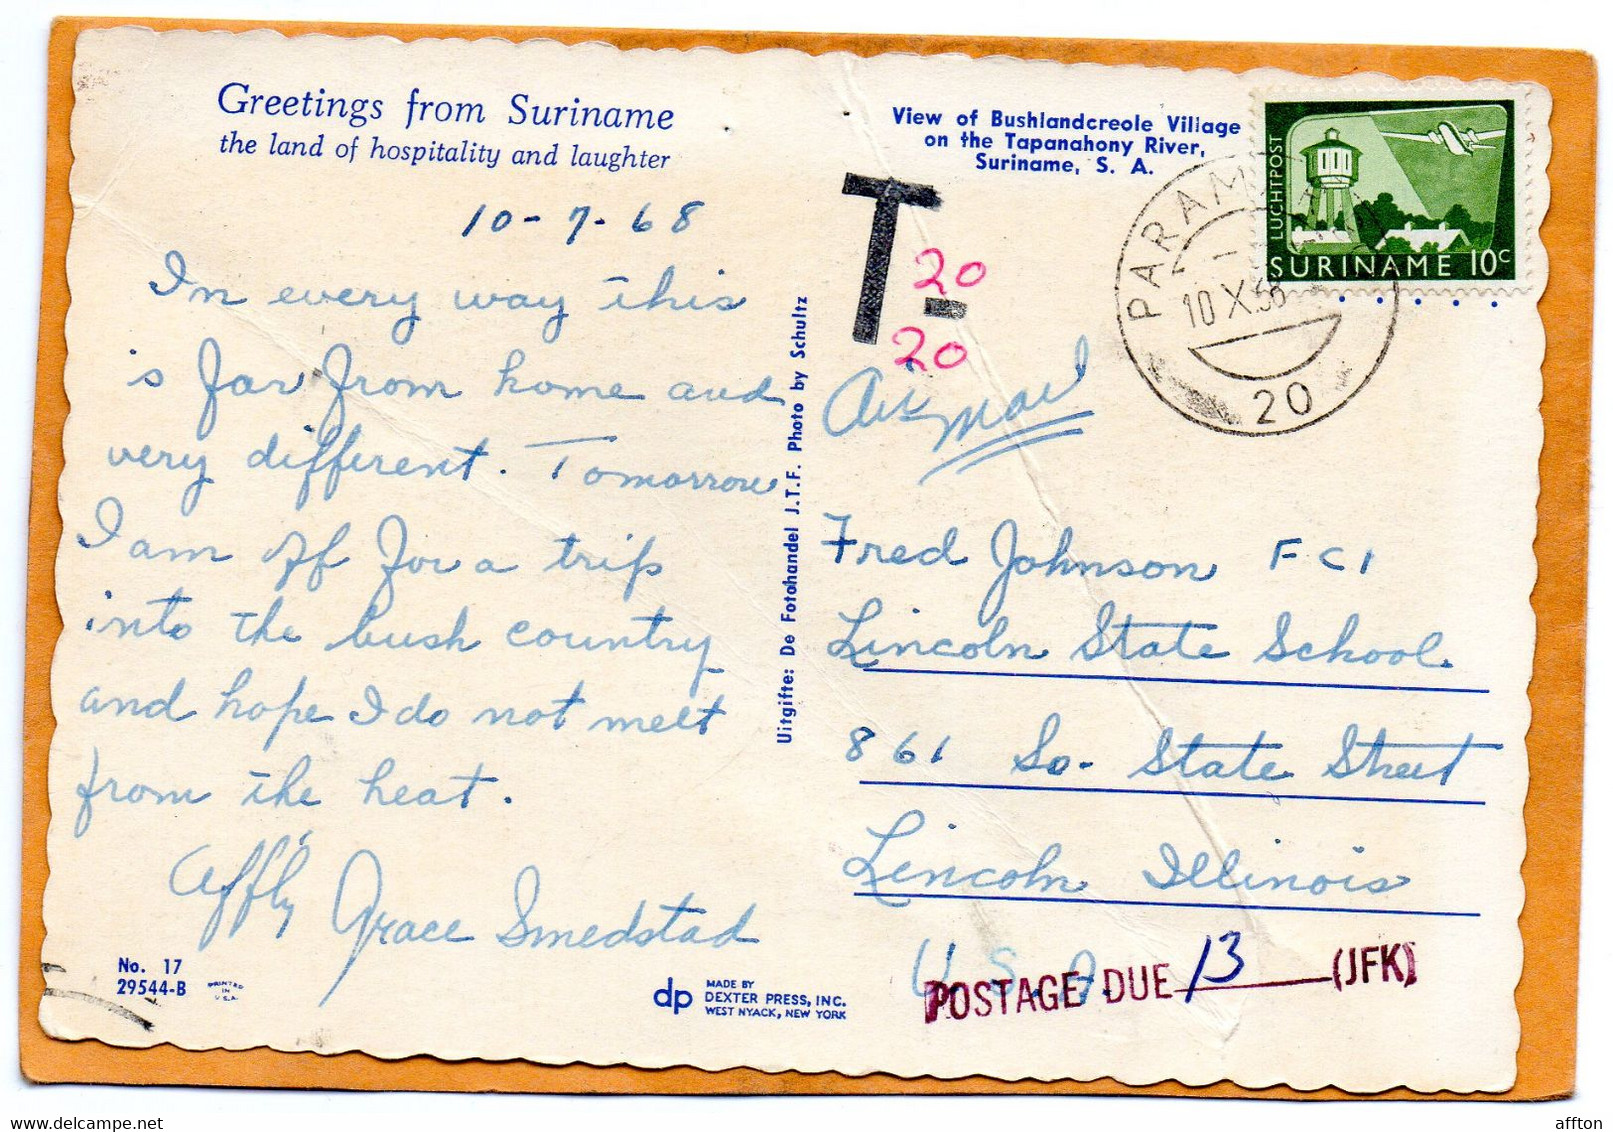 Greetings from Suriname
the land of hospitality and laughter
10-7-68
In every way this
is far from home and
very different. Tomorrow
I am off for a trip
into the bush country
and hope I do not melt
from the heat.
Aff'ly Grace Smedstad
No. 17
29544-B
PRINTED
IN
U.S.A.
dp
MADE BY
DEXTER PRESS, INC.
WEST NYACK, NEW YORK
Uitgifte: De Fotohandel J.T.F. Photo by Schultz
View of Bushlandcreole Village
on the Tapanahony River,
Suriname, S. A.
T
20
20
LUCHTPOST
SURINAME 10c
PARAM
10 X 68
20
Air Mail
Fred Johnson FCI
Lincoln State School
861 So. State Street
Lincoln Illinois
U.S.A.
POSTAGE DUE 13 (JFK)
affton